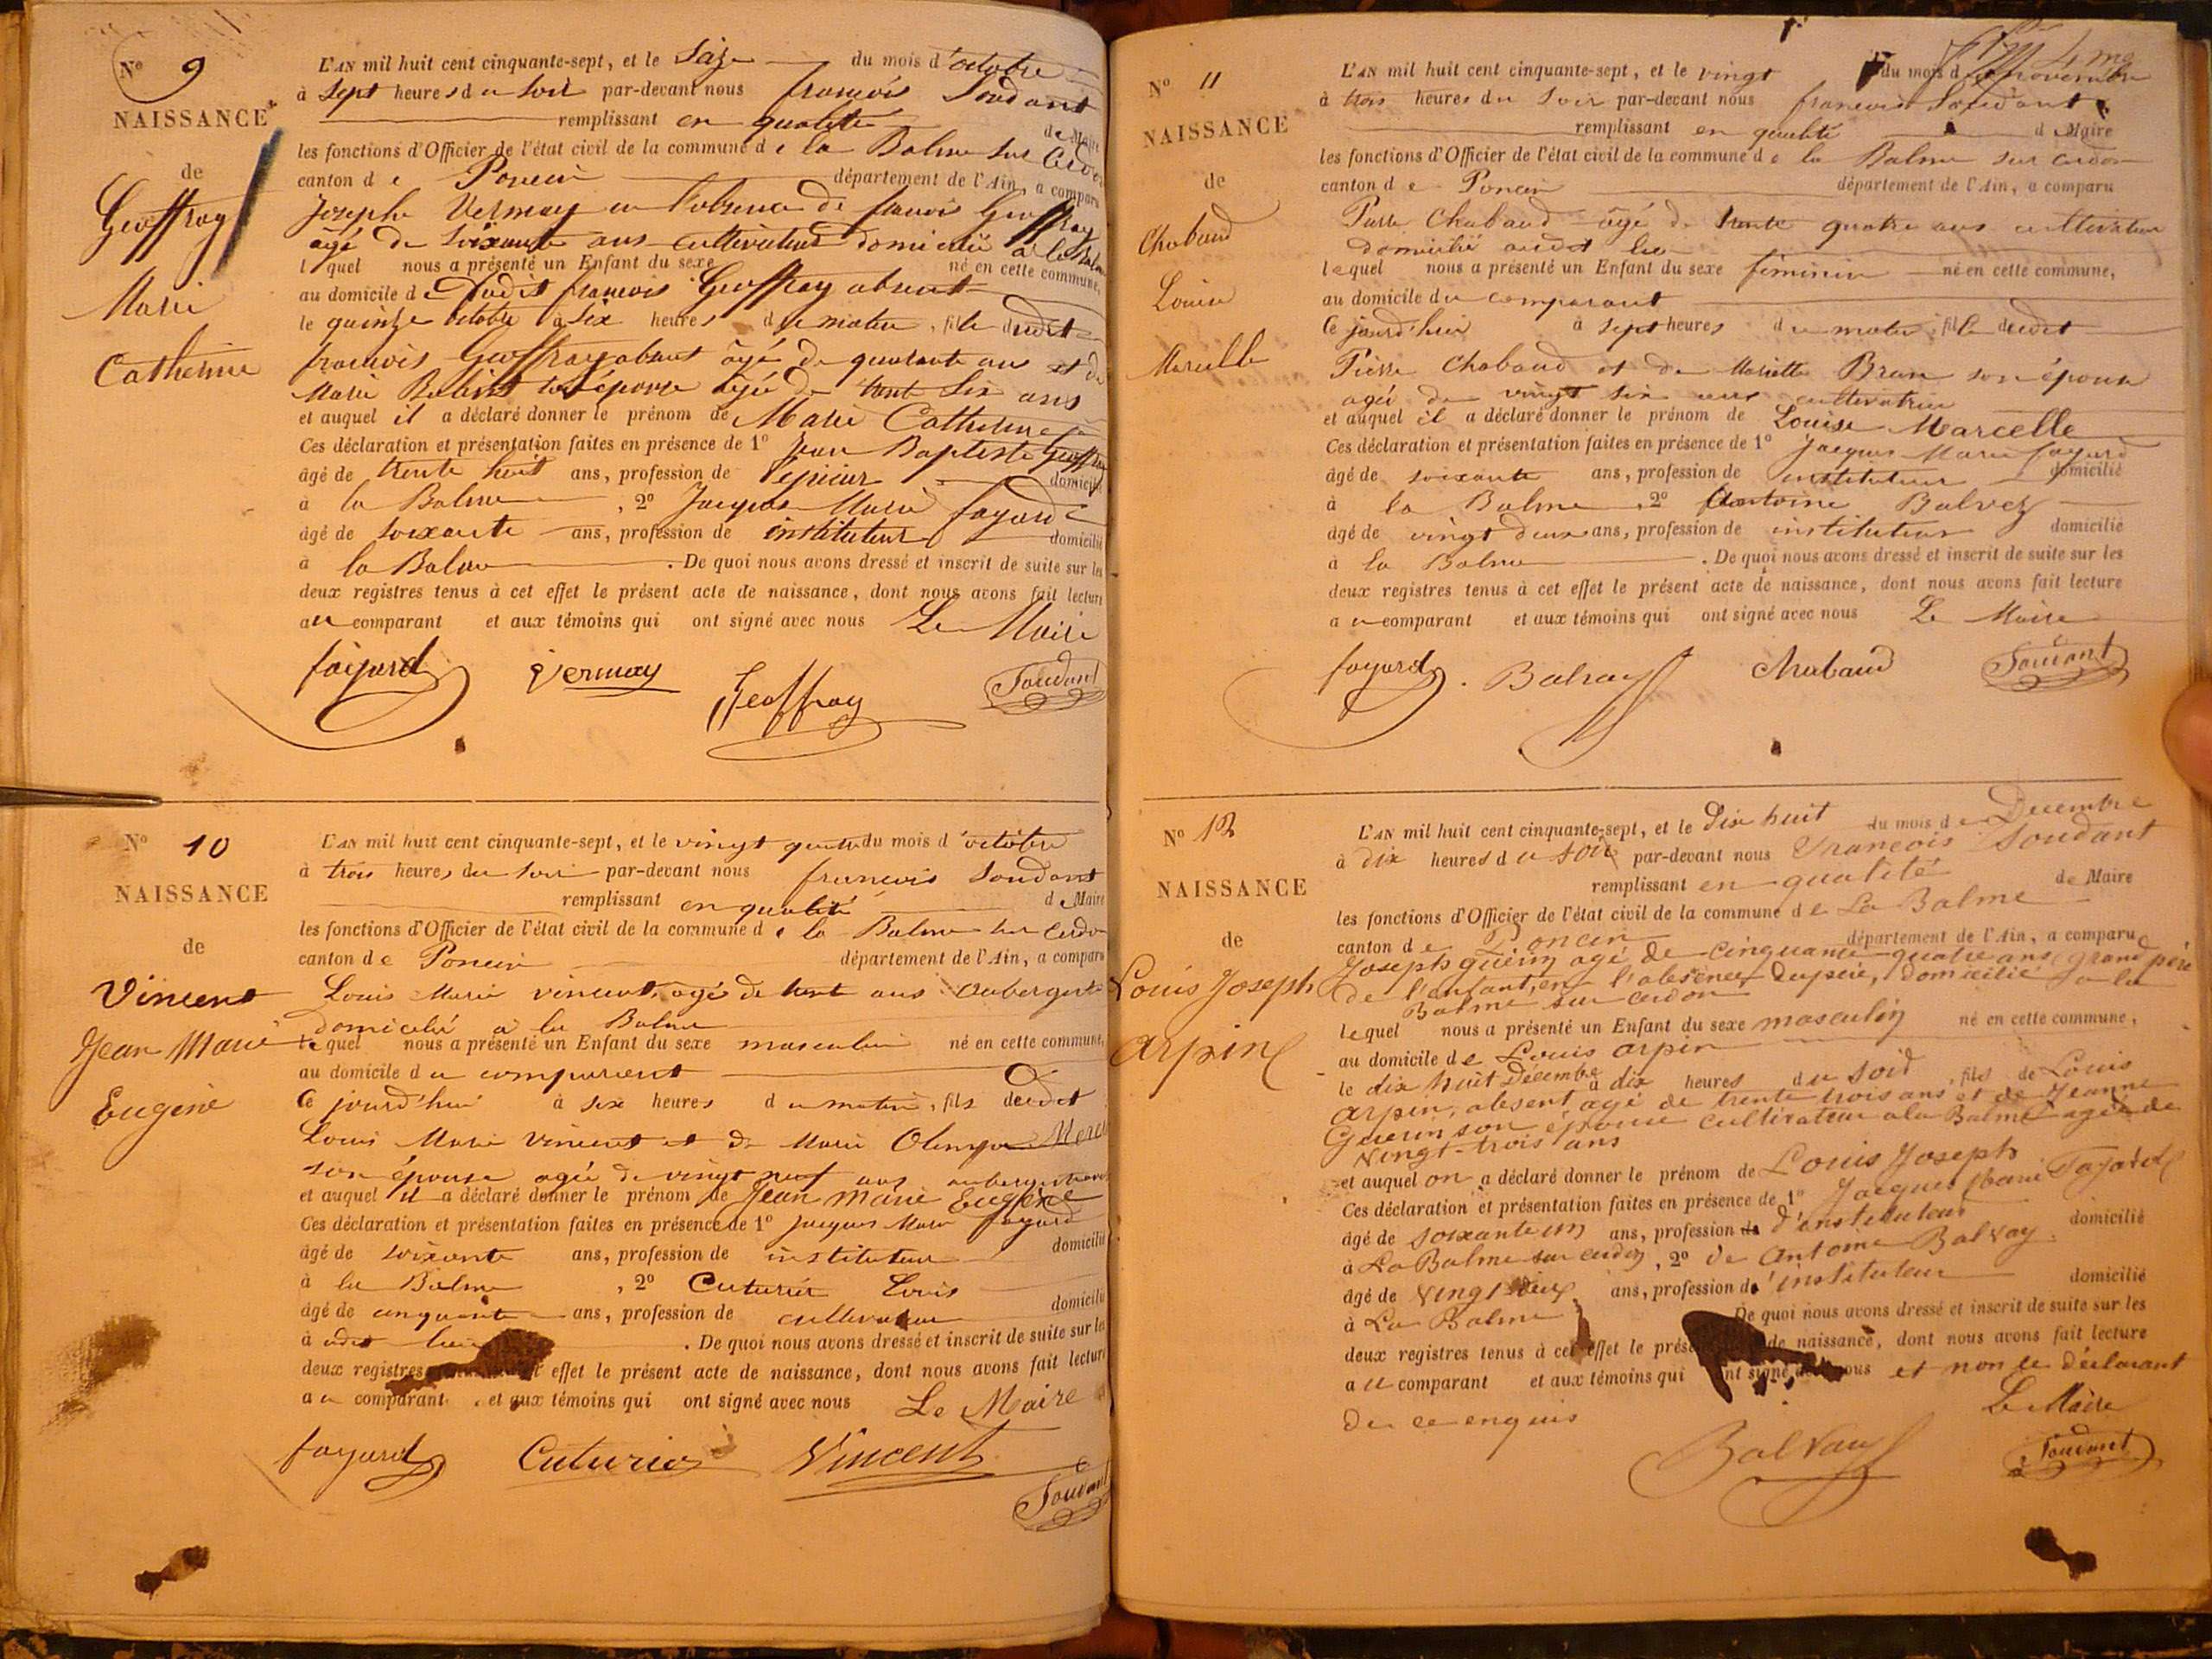 N° 9
NAISSANCE
de
Geoffray
Marie
Catherine
L'AN mil huit cent cinquante-sept, et le Saize du mois d'octobre
à Sept heures du Soir par-devant nous francois Soudant
remplissant en qualité de Maire
les fonctions d'Officier de l'état civil de la commune de la Balme sur Cerdon
canton de Poncin département de l'Ain, a comparu
Joseph Vermay en l'absence de francois Geoffray
âgé de soixante ans cultivateur domicilié à la Balme
lequel nous a présenté un Enfant du sexe né en cette commune,
au domicile de dudit francois Geoffray absent
le quinze octobre à six heures du matin, fille dudit
francois Geoffray absent âgé de quarante ans et de
Marie son épouse âgée de trente six ans
et auquel il a déclaré donner le prénom de Marie Catherine
Ces déclaration et présentation faites en présence de 1° Jean Baptiste Geoffray
âgé de trente huit ans, profession de épicier domicilié
à la Balme , 2° Jacques Marie fayard
âgé de soixante ans, profession de instituteur domicilié
à la Balme . De quoi nous avons dressé et inscrit de suite sur les
deux registres tenus à cet effet le présent acte de naissance, dont nous avons fait lecture
au comparant et aux témoins qui ont signé avec nous Le Maire
fayard Vermay Geoffray Soudant
N° 10
NAISSANCE
de
Vincent
Jean Marie
Eugène
L'AN mil huit cent cinquante-sept, et le vingt quatre du mois d'octobre
à trois heures du soir par-devant nous francois Soudant
remplissant en qualité de Maire
les fonctions d'Officier de l'état civil de la commune de la Balme sur Cerdon
canton de Poncin département de l'Ain, a comparu
Louis Marie vincent, agé de trente ans aubergiste
domicilié à la Balme
lequel nous a présenté un Enfant du sexe masculin né en cette commune,
au domicile du comparant
Ce jourd'hui à six heures du matin, fils dudit
Louis Marie Vincent et de Marie Olimpe
son épouse agée de vingt neuf ans
et auquel il a déclaré donner le prénom de Jean Marie Eugène
Ces déclaration et présentation faites en présence de 1° Jacques Marie fayard
âgé de soixante ans, profession de instituteur domicilié
à la Balme , 2° Cuturier Louis
âgé de cinquante ans, profession de cultivateur domicilié
à audit lieu . De quoi nous avons dressé et inscrit de suite sur les
deux registres effet le présent acte de naissance, dont nous avons fait lecture
au comparant et aux témoins qui ont signé avec nous Le Maire
fayard Cuturier Vincent
Soudant
N° 11
NAISSANCE
de
Chabaud
Louise
Marcelle
L'AN mil huit cent cinquante-sept, et le vingt du mois de novembre
à trois heures du soir par-devant nous francois Soudant
remplissant en qualité de Maire
les fonctions d'Officier de l'état civil de la commune de la Balme sur cerdon
canton de Poncin département de l'Ain, a comparu
Pierre Chabaud âgé de trente quatre ans cultivateur
domicilié audit lieu
lequel nous a présenté un Enfant du sexe féminin né en cette commune,
au domicile du comparant
Ce jourd'hui à sept heures du matin, fille dudit
Pierre Chabaud et de Mariette Brun son épouse
agée de vingt six ans cultivatrice
et auquel il a déclaré donner le prénom de Louise Marcelle
Ces déclaration et présentation faites en présence de 1° Jacques Marie fayard
âgé de soixante ans, profession de instituteur domicilié
à la Balme , 2° Antoine
âgé de vingt deux ans, profession de instituteur domicilié
à la Balme . De quoi nous avons dressé et inscrit de suite sur les
deux registres tenus à cet effet le présent acte de naissance, dont nous avons fait lecture
au comparant et aux témoins qui ont signé avec nous Le Maire
fayard Balvay Chabaud Soudant
N° 12
NAISSANCE
de
Louis Joseph
arpin
L'AN mil huit cent cinquante-sept, et le Dix huit du mois de Decembre
à dix heures du soir par-devant nous Francois Soudant
remplissant en qualité de Maire
les fonctions d'Officier de l'état civil de la commune de La Balme
canton de Poncin département de l'Ain, a comparu
Joseph guerin agé de cinquante quatre ans grand père
de l'enfant, en l'absence du père, domicilié à la
Balme sur cerdon
lequel nous a présenté un Enfant du sexe masculin né en cette commune,
au domicile de Louis arpin
le dix huit Décembre à dix heures du soir, fils de Louis
arpin, absent agé de trente trois ans et de Jeanne
Guerin son épouse cultivateur a la Balme agée de
vingt-trois ans
et auquel on a déclaré donner le prénom de Louis Joseph
Ces déclaration et présentation faites en présence de 1° Jacques Marie Fayard
âgé de soixante un ans, profession de d'instituteur domicilié
à La Balme sur cerdon, 2° de Antoine Balvay
âgé de vingt deux ans, profession d'instituteur domicilié
à La Balme De quoi nous avons dressé et inscrit de suite sur les
deux registres tenus à cet effet le de naissance, dont nous avons fait lecture
au comparant et aux témoins qui ont signé avec nous et non le déclarant
de ce enquis Le Maire
Balvay Soudant